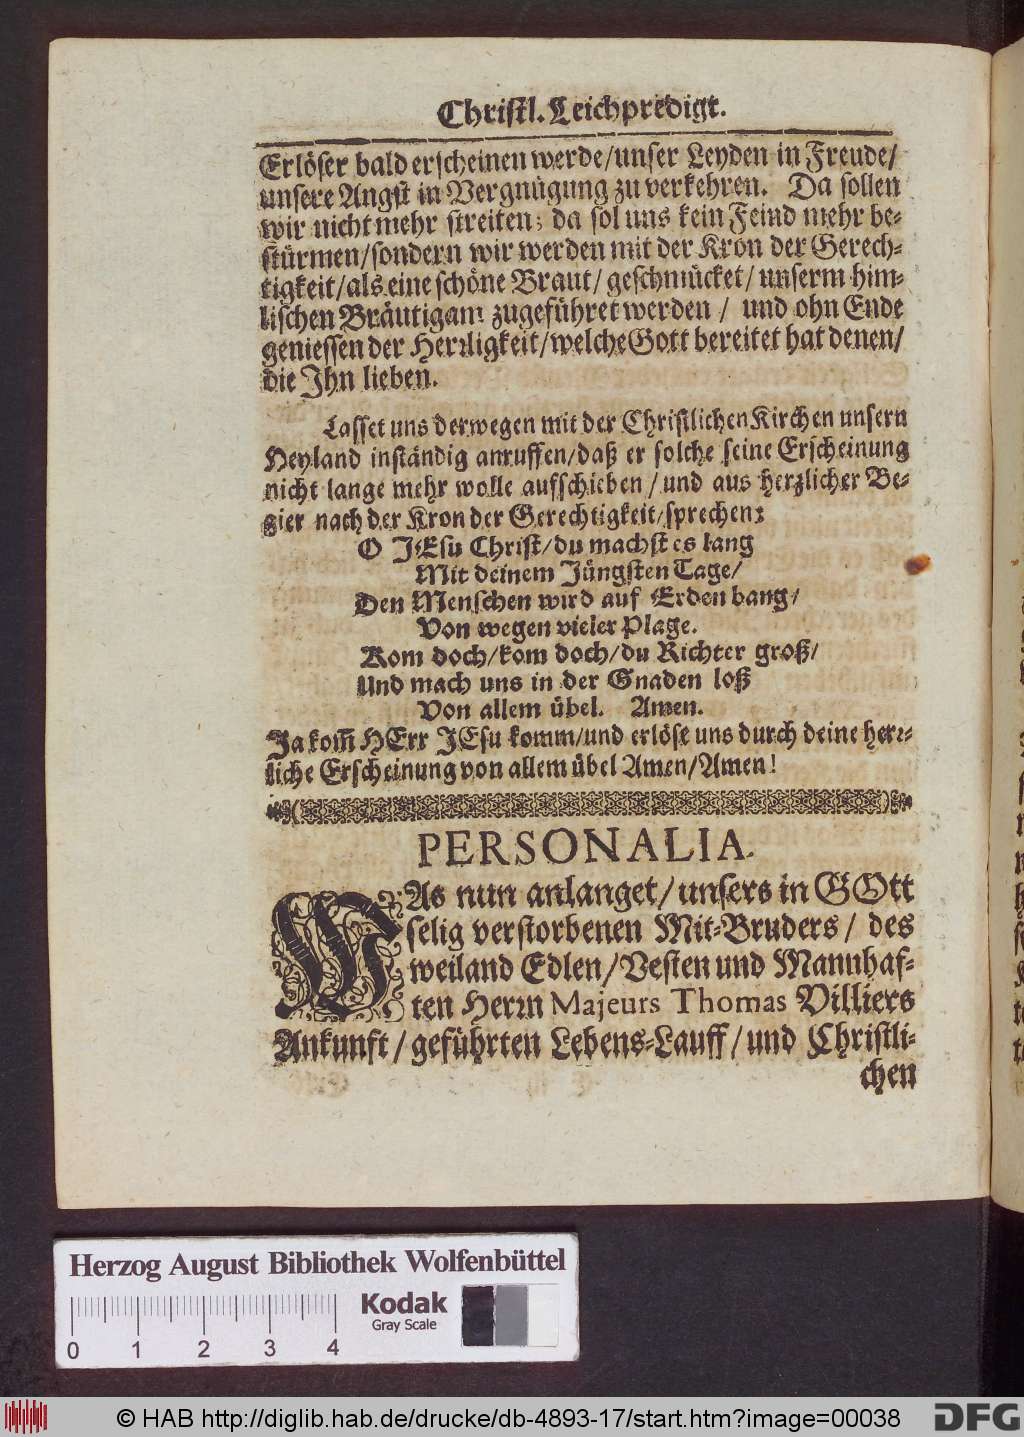 Christl. Leichpredigt.
Erlöser bald erscheinen werde/unser Leyden in Freude/
unsere Angst in Vergnügung zu verkehren. Da sollen
wir nicht mehr streiten; da sol uns kein Feind mehr be-
stürmen/sondern wir werden mit der Kron der Gerech-
tigkeit/als eine schöne Braut/ geschmücket/ unserm him-
lischen Bräutigam zugeführet werden / und ohn Ende
geniessen der Herrligkeit/welche Gott bereitet hat denen/
die Jhn lieben.
Lasset uns derwegen mit der Christlichen Kirchen unsern
Heyland inständig anruffen/daß er solche seine Erscheinung
nicht lange mehr wolle aufschieben/und aus herzlicher Be-
gier nach der Kron der Gerechtigkeit/sprechen:
O JEsu Christ/du machst es lang
Mit deinem Jüngsten Tage/
Den Menschen wird auf Erden bang/
Von wegen vieler Plage.
Kom doch/kom doch/du Richter groß/
Und mach uns in der Gnaden loß
Von allem übel. Amen.
Ja kom̃ HErr JEsu komm/und erlöse uns durch deine herr-
liche Erscheinung von allem übel Amen/Amen!
PERSONALIA.
WAs nun anlanget/unsers in GOtt
selig verstorbenen Mit-Bruders/ des
weiland Edlen/Vesten und Mannhaf-
ten Herrn Majeurs Thomas Villiers
Ankunft/geführten Lebens-Lauff/und Christli-
chen
Herzog August Bibliothek Wolfenbüttel
Kodak
Gray Scale
0 1 2 3 4
© HAB http://diglib.hab.de/drucke/db-4893-17/start.htm?image=00038
DFG